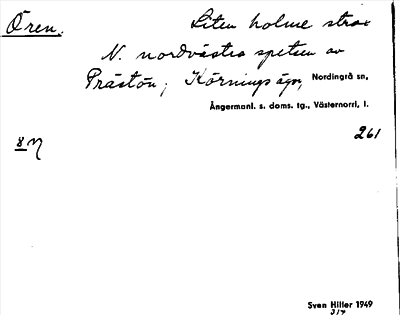 Ören. Liten holme strax
N. nordvästra spetsen av
Prästön, Körnings ägor, Nordingrå sn,
Ångermanl. s. doms. tg., Västernorrl. l.
8 261
Sven Hiller 1949